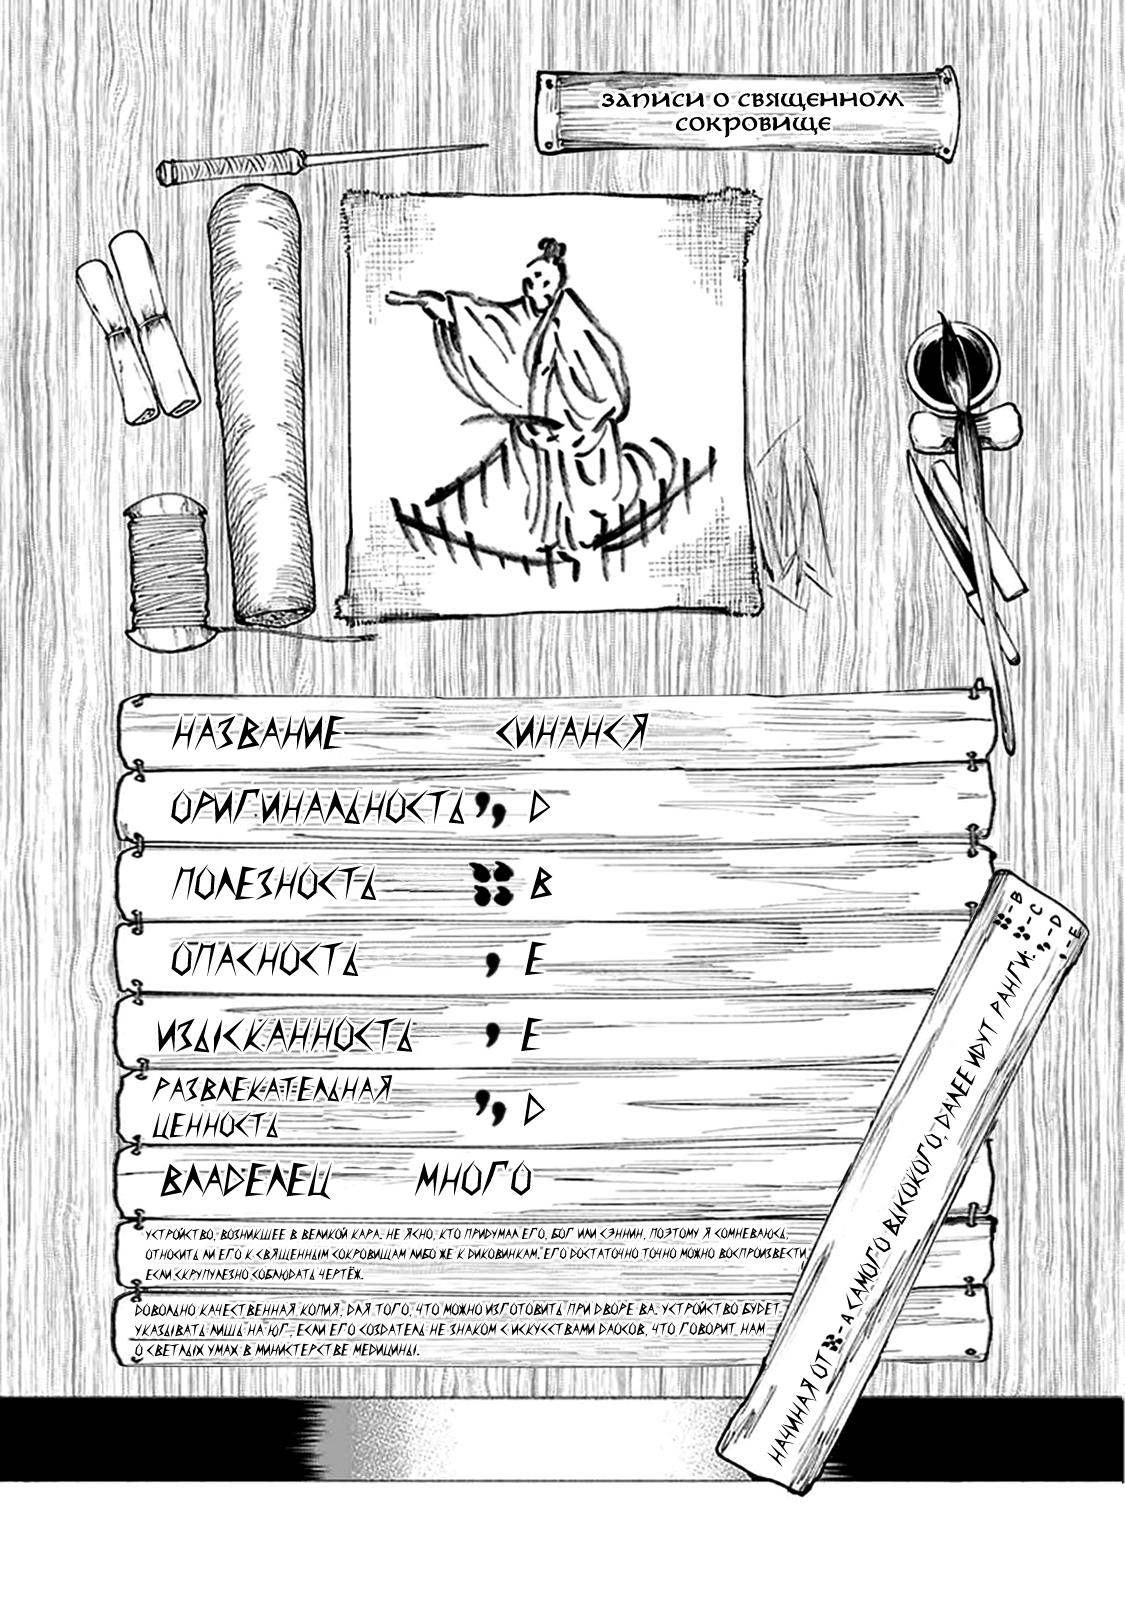 ЗАПИСИ О СВЯЩЕННОМ
СОКРОВИЩЕ
НАЗВАНИЕ СИНАНСЯ
ОРИГИНАЛЬНОСТЬ D
ПОЛЕЗНОСТЬ B
ОПАСНОСТЬ E
ИЗЫСКАННОСТЬ E
РАЗВЛЕКАТЕЛЬНАЯ
ЦЕННОСТЬ D
ВЛАДЕЛЕЦ МНОГО
УСТРОЙСТВО, ВОЗНИКШЕЕ В ВЕЛИКОЙ КАРА. НЕ ЯСНО, КТО ПРИДУМАЛ ЕГО, БОГ ИЛИ СЭННИН, ПОЭТОМУ Я СОМНЕВАЮСЬ,
ОТНОСИТЬ ЛИ ЕГО К СВЯЩЕННЫМ СОКРОВИЩАМ ЛИБО ЖЕ К ДИКОВИНКАМ. ЕГО ДОСТАТОЧНО ТОЧНО МОЖНО ВОСПРОИЗВЕСТИ,
ЕСЛИ СКРУПУЛЕЗНО СОБЛЮДАТЬ ЧЕРТЁЖ.
ДОВОЛЬНО КАЧЕСТВЕННАЯ КОПИЯ, ДЛЯ ТОГО, ЧТО МОЖНО ИЗГОТОВИТЬ ПРИ ДВОРЕ ВА. УСТРОЙСТВО БУДЕТ
УКАЗЫВАТЬ ЛИШЬ НА ЮГ, ЕСЛИ ЕГО СОЗДАТЕЛЬ НЕ ЗНАКОМ С ИСКУССТВАМИ DАОСОВ, ЧТО ГОВОРИТ НАМ
О СВЕТЛЫХ УМАХ В МИНИСТЕРСТВЕ МЕДИЦИНЫ.
НАЧИНАЯ ОТ - А САМОГО ВЫСОКОГО, ДАЛЕЕ ИДУТ РАНГИ:
-B
-C
-D
-E